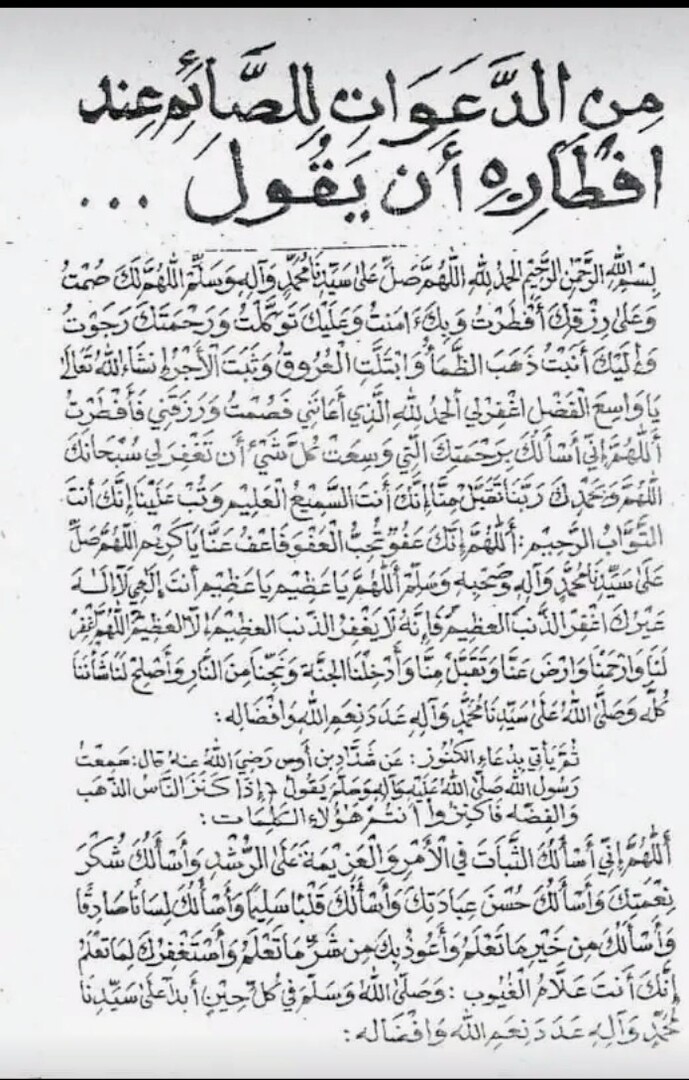 مِنَ الدَّعَوَاتِ لِلصَّائِمِ عِنْد
افْطَارِهِ أَن يَقُولَ ...
بِسْمِ اللهِ الرَّحْمٰنِ الرَّحِيْمِ الحَمْدُ لِلّٰهِ اللّٰهُمَّ صَلِّ عَلىٰ سَيِّدِنَا مُحَمَّدٍ وَآلِهِ وَسَلِّمْ اللّٰهُمَّ لَكَ صُمْتُ
وَعَلىٰ رِزْقِكَ أَفْطَرْتُ وَبِكَ ءَامَنتُ وَعَلَيْكَ تَوَكَّلْتُ وَرَحْمَتَكَ رَجَوْتُ
وَإِلَيْكَ أَنَبْتُ ذَهَبَ الظَّمَأُ وَابْتَلَّتِ الْعُرُوقُ وَثَبَتَ الْأَجْرُ إِنْشَاءَ اللهُ تَعَالىٰ
يَا وَاسِعَ الْفَضْلِ اغْفِرْلِي الحَمْدُ لِلّٰهِ الَّذِي أَعَانَنِي فَصُمْتُ وَرَزَقَنِي فَأَفْطَرْتُ
أَللّٰهُمَّ إِنِّي أَسْأَلُكَ بِرَحْمَتِكَ الَّتِي وَسِعَتْ كُلَّ شَيْءٍ أَنْ تَغْفِرَلِي سُبْحَانَكَ
اللّٰهُمَّ وَبِحَمْدِكَ رَبَّنَا تَقَبَّلْ مِنَّا إِنَّكَ أَنْتَ السَّمِيْعُ الْعَلِيْمُ وَتُبْ عَلَيْنَا إِنَّكَ أَنْتَ
التَّوَّابُ الرَّحِيْمُ : أَللّٰهُمَّ إِنَّكَ عَفُوٌّ تُحِبُّ الْعَفْوَ فَاعْفُ عَنَّا يَا كَرِيْمُ اللّٰهُمَّ صَلِّ
عَلىٰ سَيِّدِنَا مُحَمَّدٍ وَآلِهِ وَصَحْبِهِ وَسَلِّمْ أَللّٰهُمَّ يَا عَظِيْمُ يَا عَظِيْمُ أَنْتَ إِلٰهِي لَا إِلٰهَ
غَيْرُكَ اغْفِرِ الذَّنْبَ الْعَظِيْمَ فَإِنَّهُ لَا يَغْفِرُ الذَّنْبَ الْعَظِيْمَ إِلَّا الْعَظِيْمُ اللّٰهُمَّ اغْفِرْ
لَنَا وَارْحَمْنَا وَارْضَ عَنَّا وَتَقَبَّلْ مِنَّا وَأَدْخِلْنَا الْجَنَّةَ وَنَجِّنَا مِنَ النَّارِ وَأَصْلِحْ لَنَا شَأْنَنَا
كُلَّهُ وَصَلَّى اللهُ عَلىٰ سَيِّدِنَا مُحَمَّدٍ وَآلِهِ عَدَدَ نِعَمِ اللهِ وَافْضَالِهِ :
ثُمَّ يَأْتِي بِدُعَاءِ الْكُنُوزِ : عَنْ شَدَّادِ بْنِ أَوْسٍ رَضِيَ اللهُ عَنْهُ قَالَ : سَمِعْتُ
رَسُولَ اللهِ صَلَّى اللهُ عَلَيْهِ وَآلِهِ وَسَلَّمَ يَقُولُ « إِذَا كَنَزَ النَّاسُ الذَّهَبَ
وَالْفِضَّةَ فَاكْنِزُوا أَنْتُمْ هٰؤُلَاءِ الْكَلِمَاتِ :
أَللّٰهُمَّ إِنِّي أَسْأَلُكَ الثَّبَاتَ فِي الْأَمْرِ وَالْعَزِيْمَةَ عَلَى الرُّشْدِ وَأَسْأَلُكَ شُكْرَ
نِعْمَتِكَ وَأَسْأَلُكَ حُسْنَ عِبَادَتِكَ وَأَسْأَلُكَ قَلْبًا سَلِيْمًا وَأَسْأَلُكَ لِسَانًا صَادِقًا
وَأَسْأَلُكَ مِنْ خَيْرِ مَا تَعْلَمُ وَأَعُوذُ بِكَ مِنْ شَرِّ مَا تَعْلَمُ وَأَسْتَغْفِرُكَ لِمَا تَعْلَمُ
إِنَّكَ أَنْتَ عَلَّامُ الْغُيُوبِ : وَصَلَّى اللهُ وَسَلَّمَ فِي كُلِّ حِيْنٍ أَبَدًا عَلىٰ سَيِّدِنَا
مُحَمَّدٍ وَآلِهِ عَدَدَ نِعَمِ اللهِ وَافْضَالِهِ :